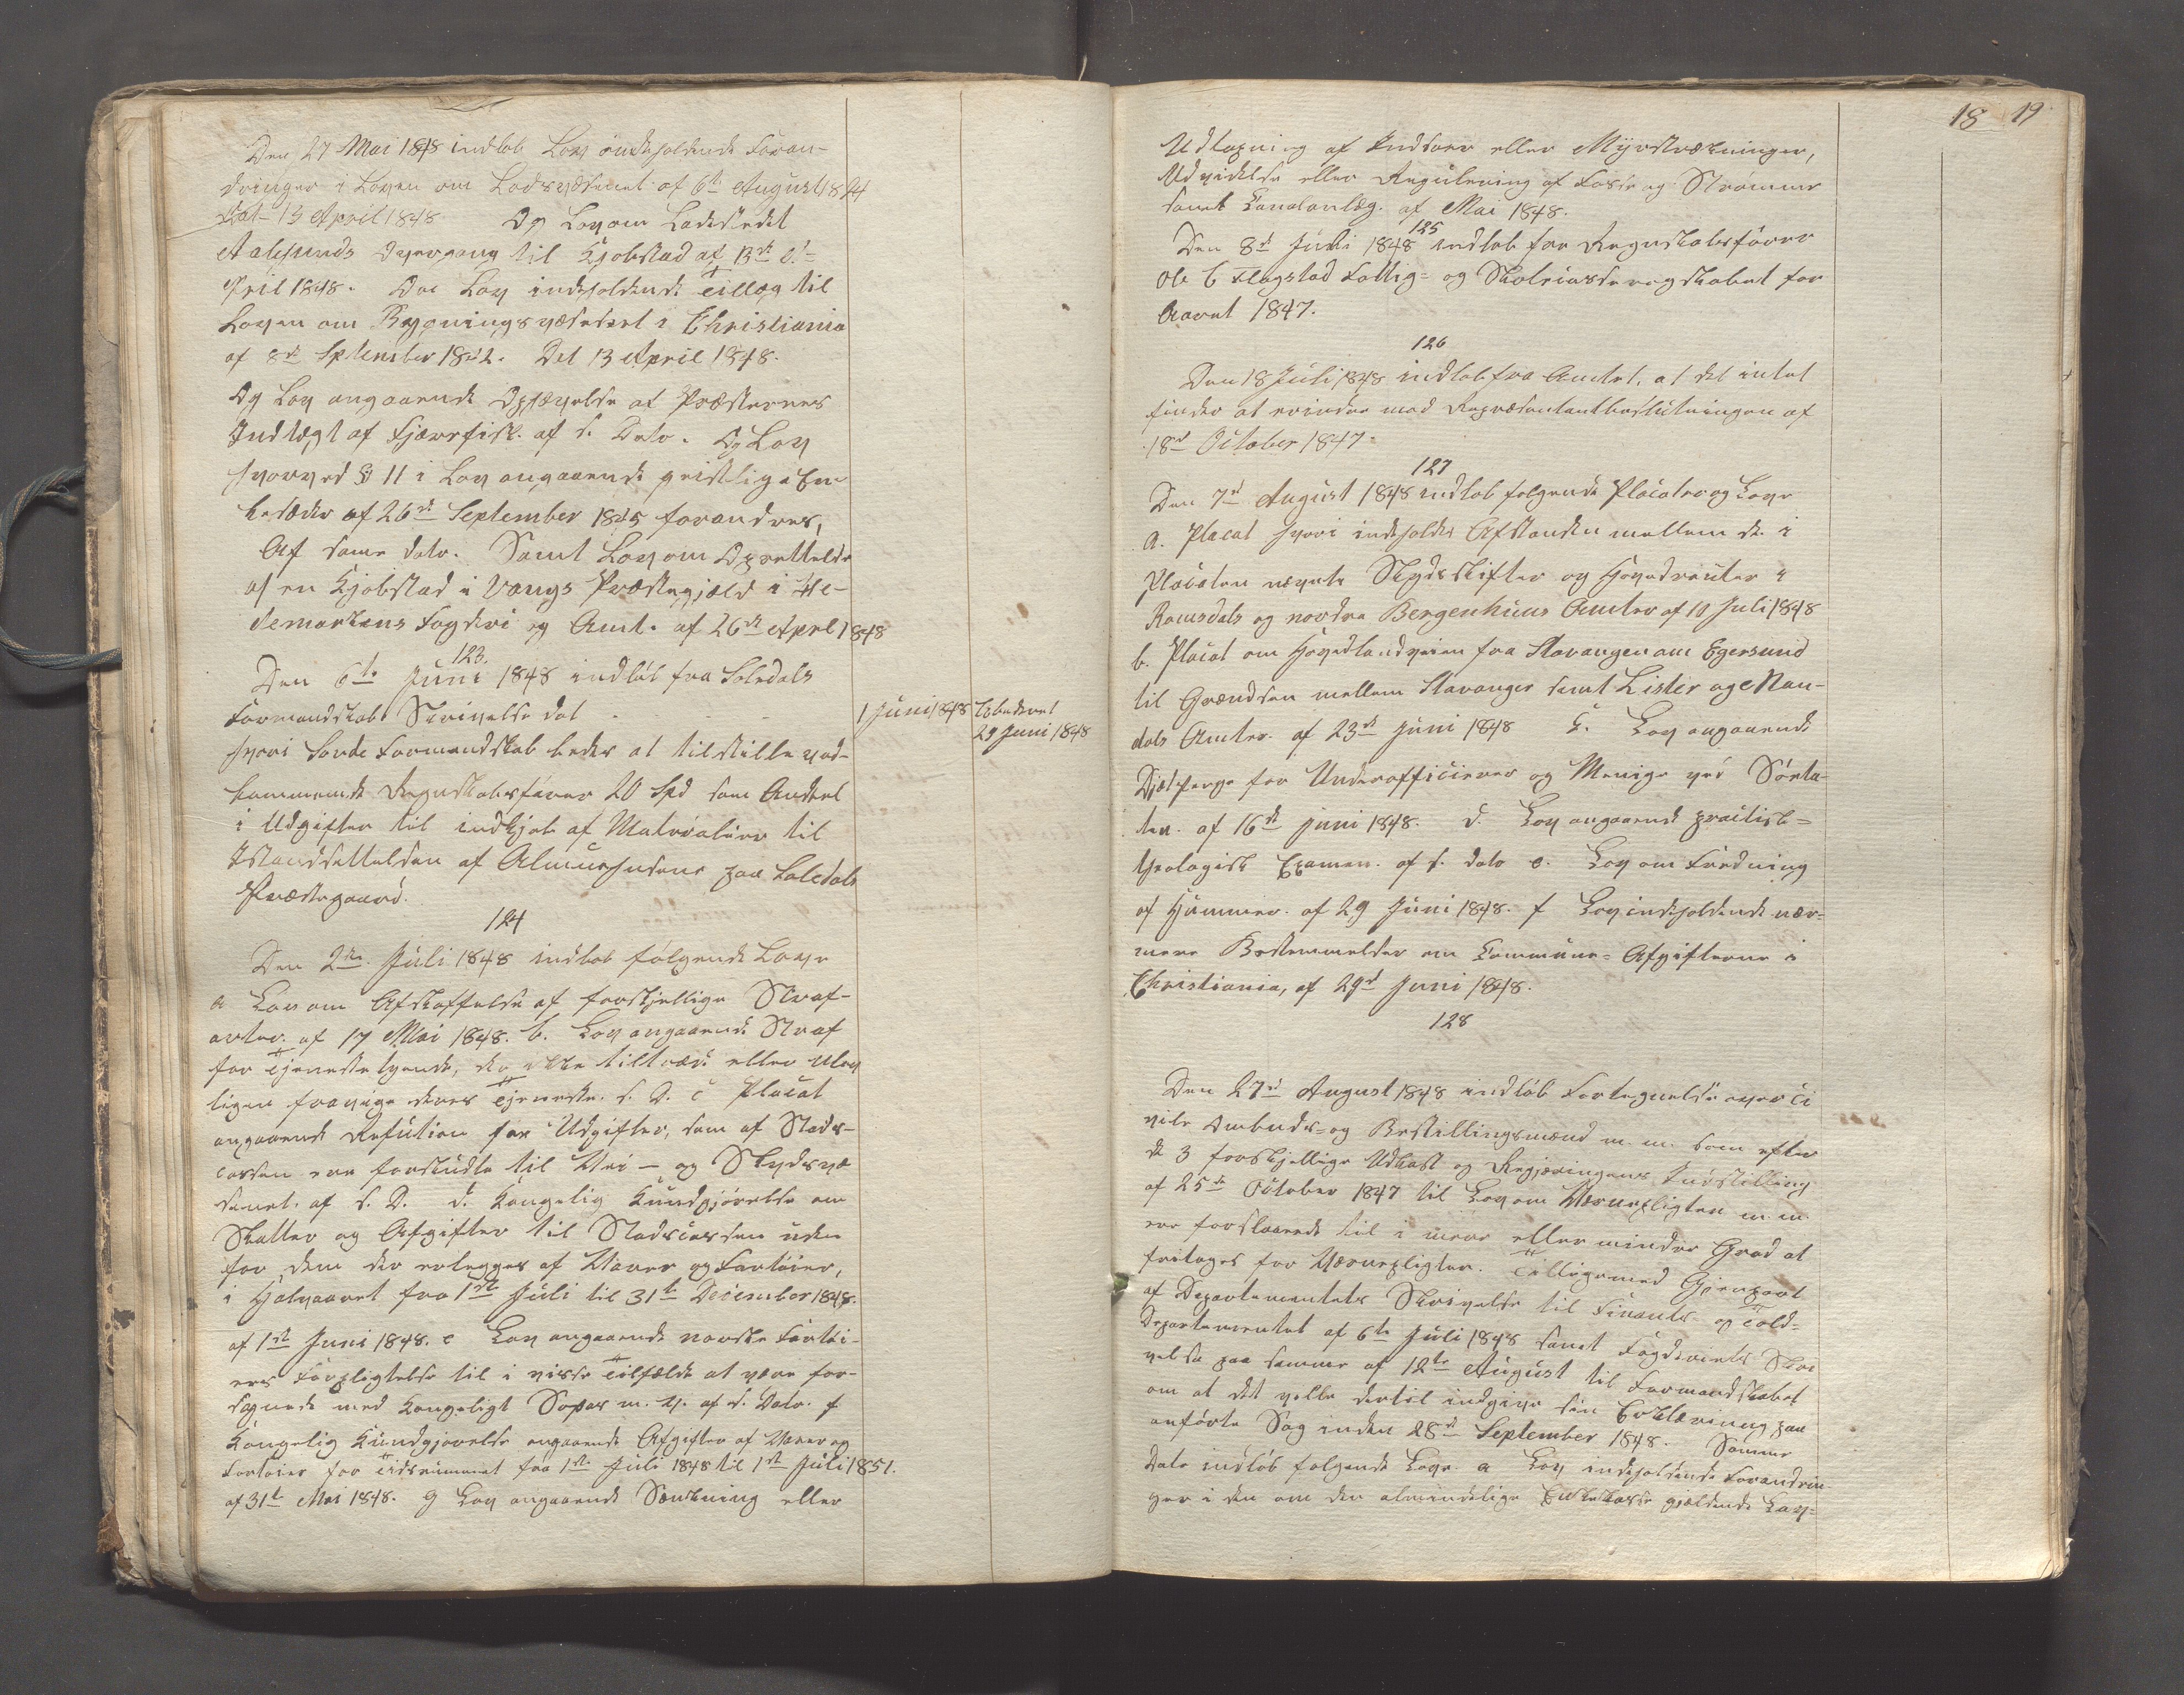 Den 27 Mai 1848 indløb Lov indeholdende Foran-
dringer i Loven om Lodsvæsenet af 6te August 1824
Dat- 13 April 1848 Og Lov om Ladestedet
Aalesunds Overgang til Kjøbstad af 13de A-
pril 1848. Og Lov indeholdende Tillæg til
Loven om Bygningsvæsenet i Christiania
af 8de September 1842. Dat 13 April 1848.
Og Lov angaaende Ophævelse af Præsternes
Indtægt af Fjærefisk. af s. Dato. Og Lov
hvorved § 11 i Lov angaaende geistlige En-
kesæder af 26de September 1845 forandres,
Af samme dato. Samt Lov om Oprettelse
af en Kjøbstad i Vangs Præstegjæld i He-
demarkens Fogderi og Amt. af 26de April 1848
123.
Den 6te Juni 1848 indløb fra Soledals
Formandskab Skrivelse dat - - - 1 Juni 1848 Besvaret
29 Juni 1848
hvori Formandskab bedes at tilstille ved-
kommende Regnskabsfører 20 Spd som Andel
i Udgifter til indkjøb af Matrialier til
Istandsættelsen af paa Soledals
Præstegaard.
124
Den 2den Juli 1848 indløb følgende Love
a Lov om Afskaffelse af forskjellige Straf-
arter. af 17 Mai 1848. b. Lov angaaende Straf
for Tjenestetyende, der ikke tiltræde eller ulov
ligen fravige deres Tjeneste. s. D. c Placat
angaaende Refution for Udgifter, som af Stats-
cassen ere forskudte til Vei- og Skydsvæ
senet. af s. D. d. Kongelig Kundgjørelse om
Skatter og Afgifter til Statscassen uden
for dem der erlægges af Varer og Fartøier,
i Halvaaret fra 1ste Juli til 31te December 1848.
af 1ste Juni 1848. e Lov angaaende norske Fartøi-
ers Forpligtelse til i visse Tilfælde at være for-
synede med Kongeligt Søpas m. v. af s. Dato. f
Kongelig Kundgjørelse angaaende Afgifter af Varer og
Fartøier for Tidsrummet fra 1ste Juli 1848 til 1ste Juli 1851.
af 31te Mai 1848. g Lov angaaende Sænkning eller
18 19
Udtapning af Indsøer eller Myrstrækninger,
Udvidelse eller Regulering af Fosse og Strømme
samt Canalanlæg. af Mai 1848.
125
Den 8de Juli 1848 indløb fra Regnskabsfører
Ole C Flagstad Fattig- og Skolecasseregnskabet for
Aaret 1847.
126
Den 18 Juli 1848 indløb fra Amtet, at det intet
finder at erindre mod Repræsentantbeslutningen af
18de October 1847.
127
Den 7de August 1848 indløb følgende Placater og Love
a. Placat hvori indeholdes Afstanden mellem de i
Placaten nævnte Skydsskifter og Hovedrouter i
Romsdals og nordre Bergenhuus Amter af 10 Juli 1848
b. Placat om Hovedlandveien fra Stavanger om Egersund
til Grændsen mellem Stavanger samt Lister og Man-
dals Amter. af 23de Juni 1848 c. Lov angaaende
for Underofficierer og Menige ved Søeta-
ten. af 16de Juni 1848. d. Lov angaaende practisk-
theologisk Examen. af s. dato e. Lov om Fredning
af Hummer. af 29 Juni 1848. f Lov indeholdende nær-
mere Bestemmelser om Commune-Afgifterne i
Christiania, af 29de Juni 1848.
128
Den 27de August 1848 indløb Fortegnelse over Ci
vile Embeds- og Bestillingsmænd m. m. som efter
de 3 forskjellige Udkast og Regjeringens Indstilling
af 25de October 1847 til Lov om Værnepligten m. m.
ere foreslaaede til i mere eller mindre Grad at
fritages for Værnepligten. Tilligemed Gjenpart
af Departementets Skrivelse til Finants- og Told-
Departementet af 6te Juli 1848 samt Fogderiets Skri
velse paa samme af 12te August til Formandskabet
om at det ville dertil indgive sin Erklæring paa
anførte Sag inden 28de September 1848. Samme
Dato indløb følgende Love. a Lov indeholdende Forandrin
ger i den om den almindelige Enkekasse gjældende Lov-